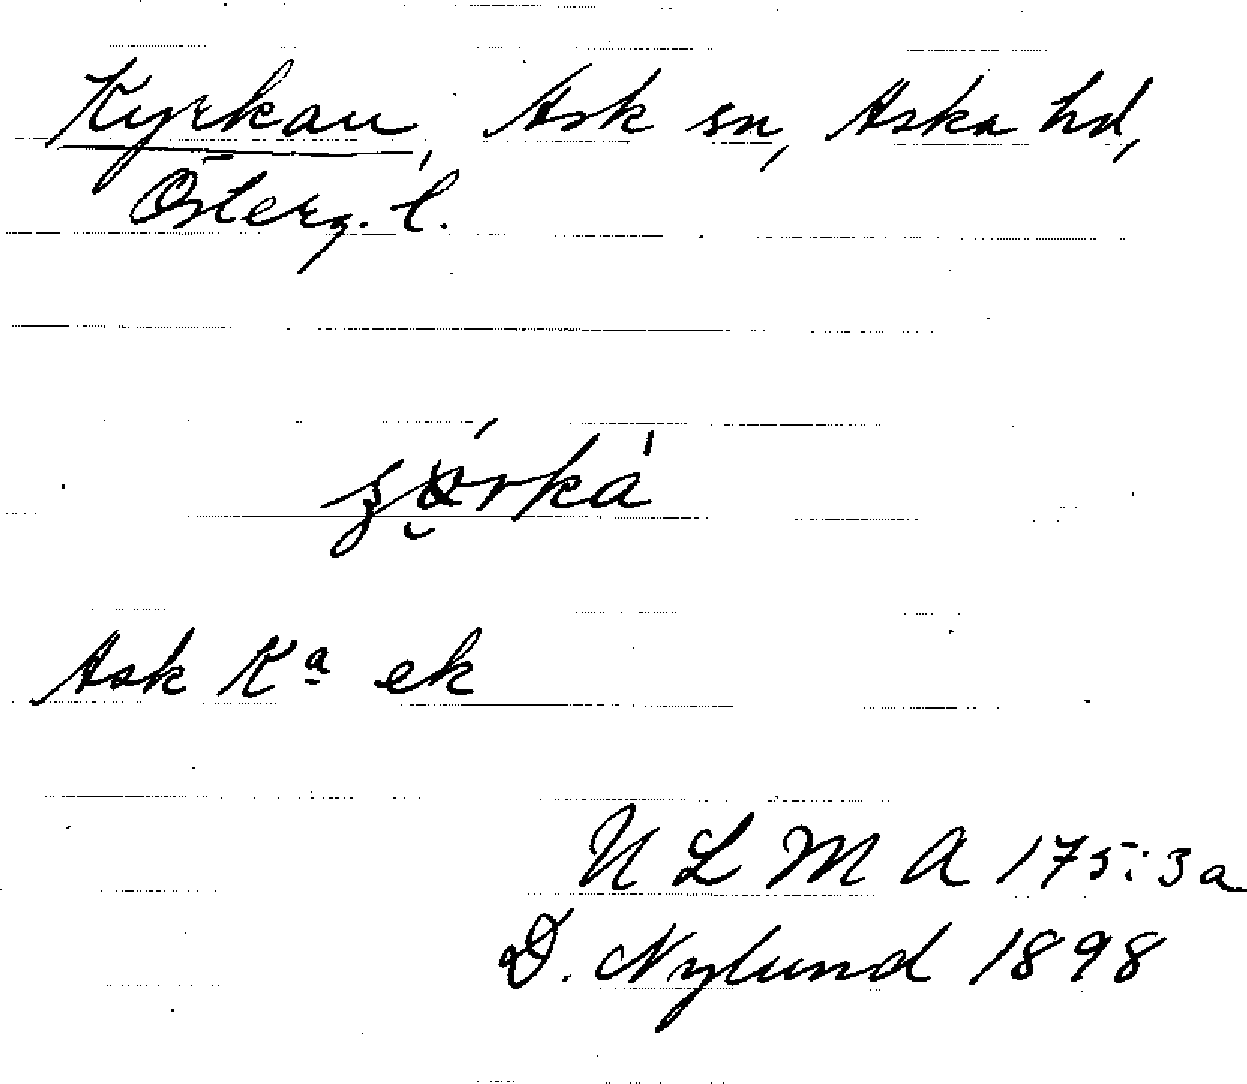 Kyrkan, Ask sn, Aska hd,
Österg. l.
Ask Kª ek
ULMA 175:3a
D. Nylund 1898